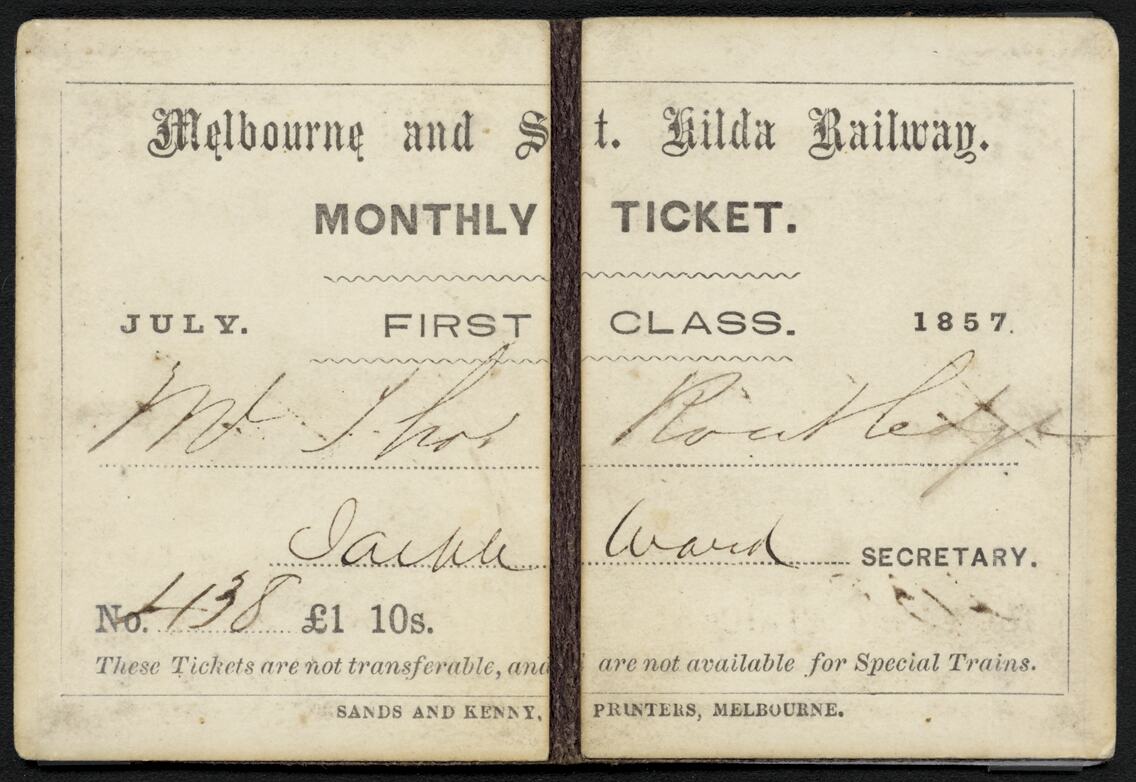 Melbourne and St. Kilda Railway.
MONTHLY TICKET.
JULY. FIRST CLASS. 1857.
Mr Thos Routledge
Ward SECRETARY.
No. 438 £1 10s.
These Tickets are not transferable, and are not available for Special Trains.
SANDS AND KENNY, PRINTERS, MELBOURNE.